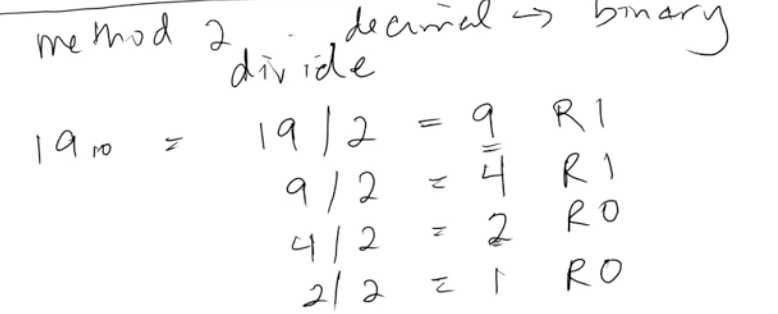 method 2 decimal → binary
divide
19₁₀ = 19/2 = 9 R1
9/2 = 4 R1
4/2 = 2 R0
2/2 = 1 R0